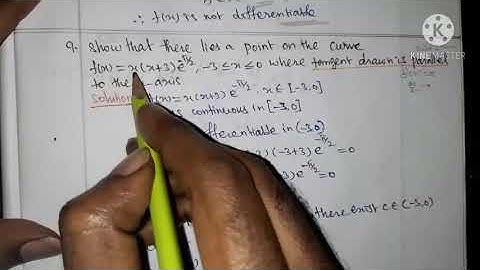 ∴ f(x) is not differentiable
KINEMASTER
9. Show that there lies a point on the curve
f(x) = x(x+3) e^-π/2, -3 ≤ x ≤ 0 where tangent drawn is parallel
to the -axis
Solution f(x) = x(x+3) e^-π/2 : x ∈ [-3,0]
is continuous in [-3,0]
differentiable in (-3,0)
(-3+3) e^-π/2 = 0
+3) e^-π/2 = 0
there exist c ∈ (-3,0)